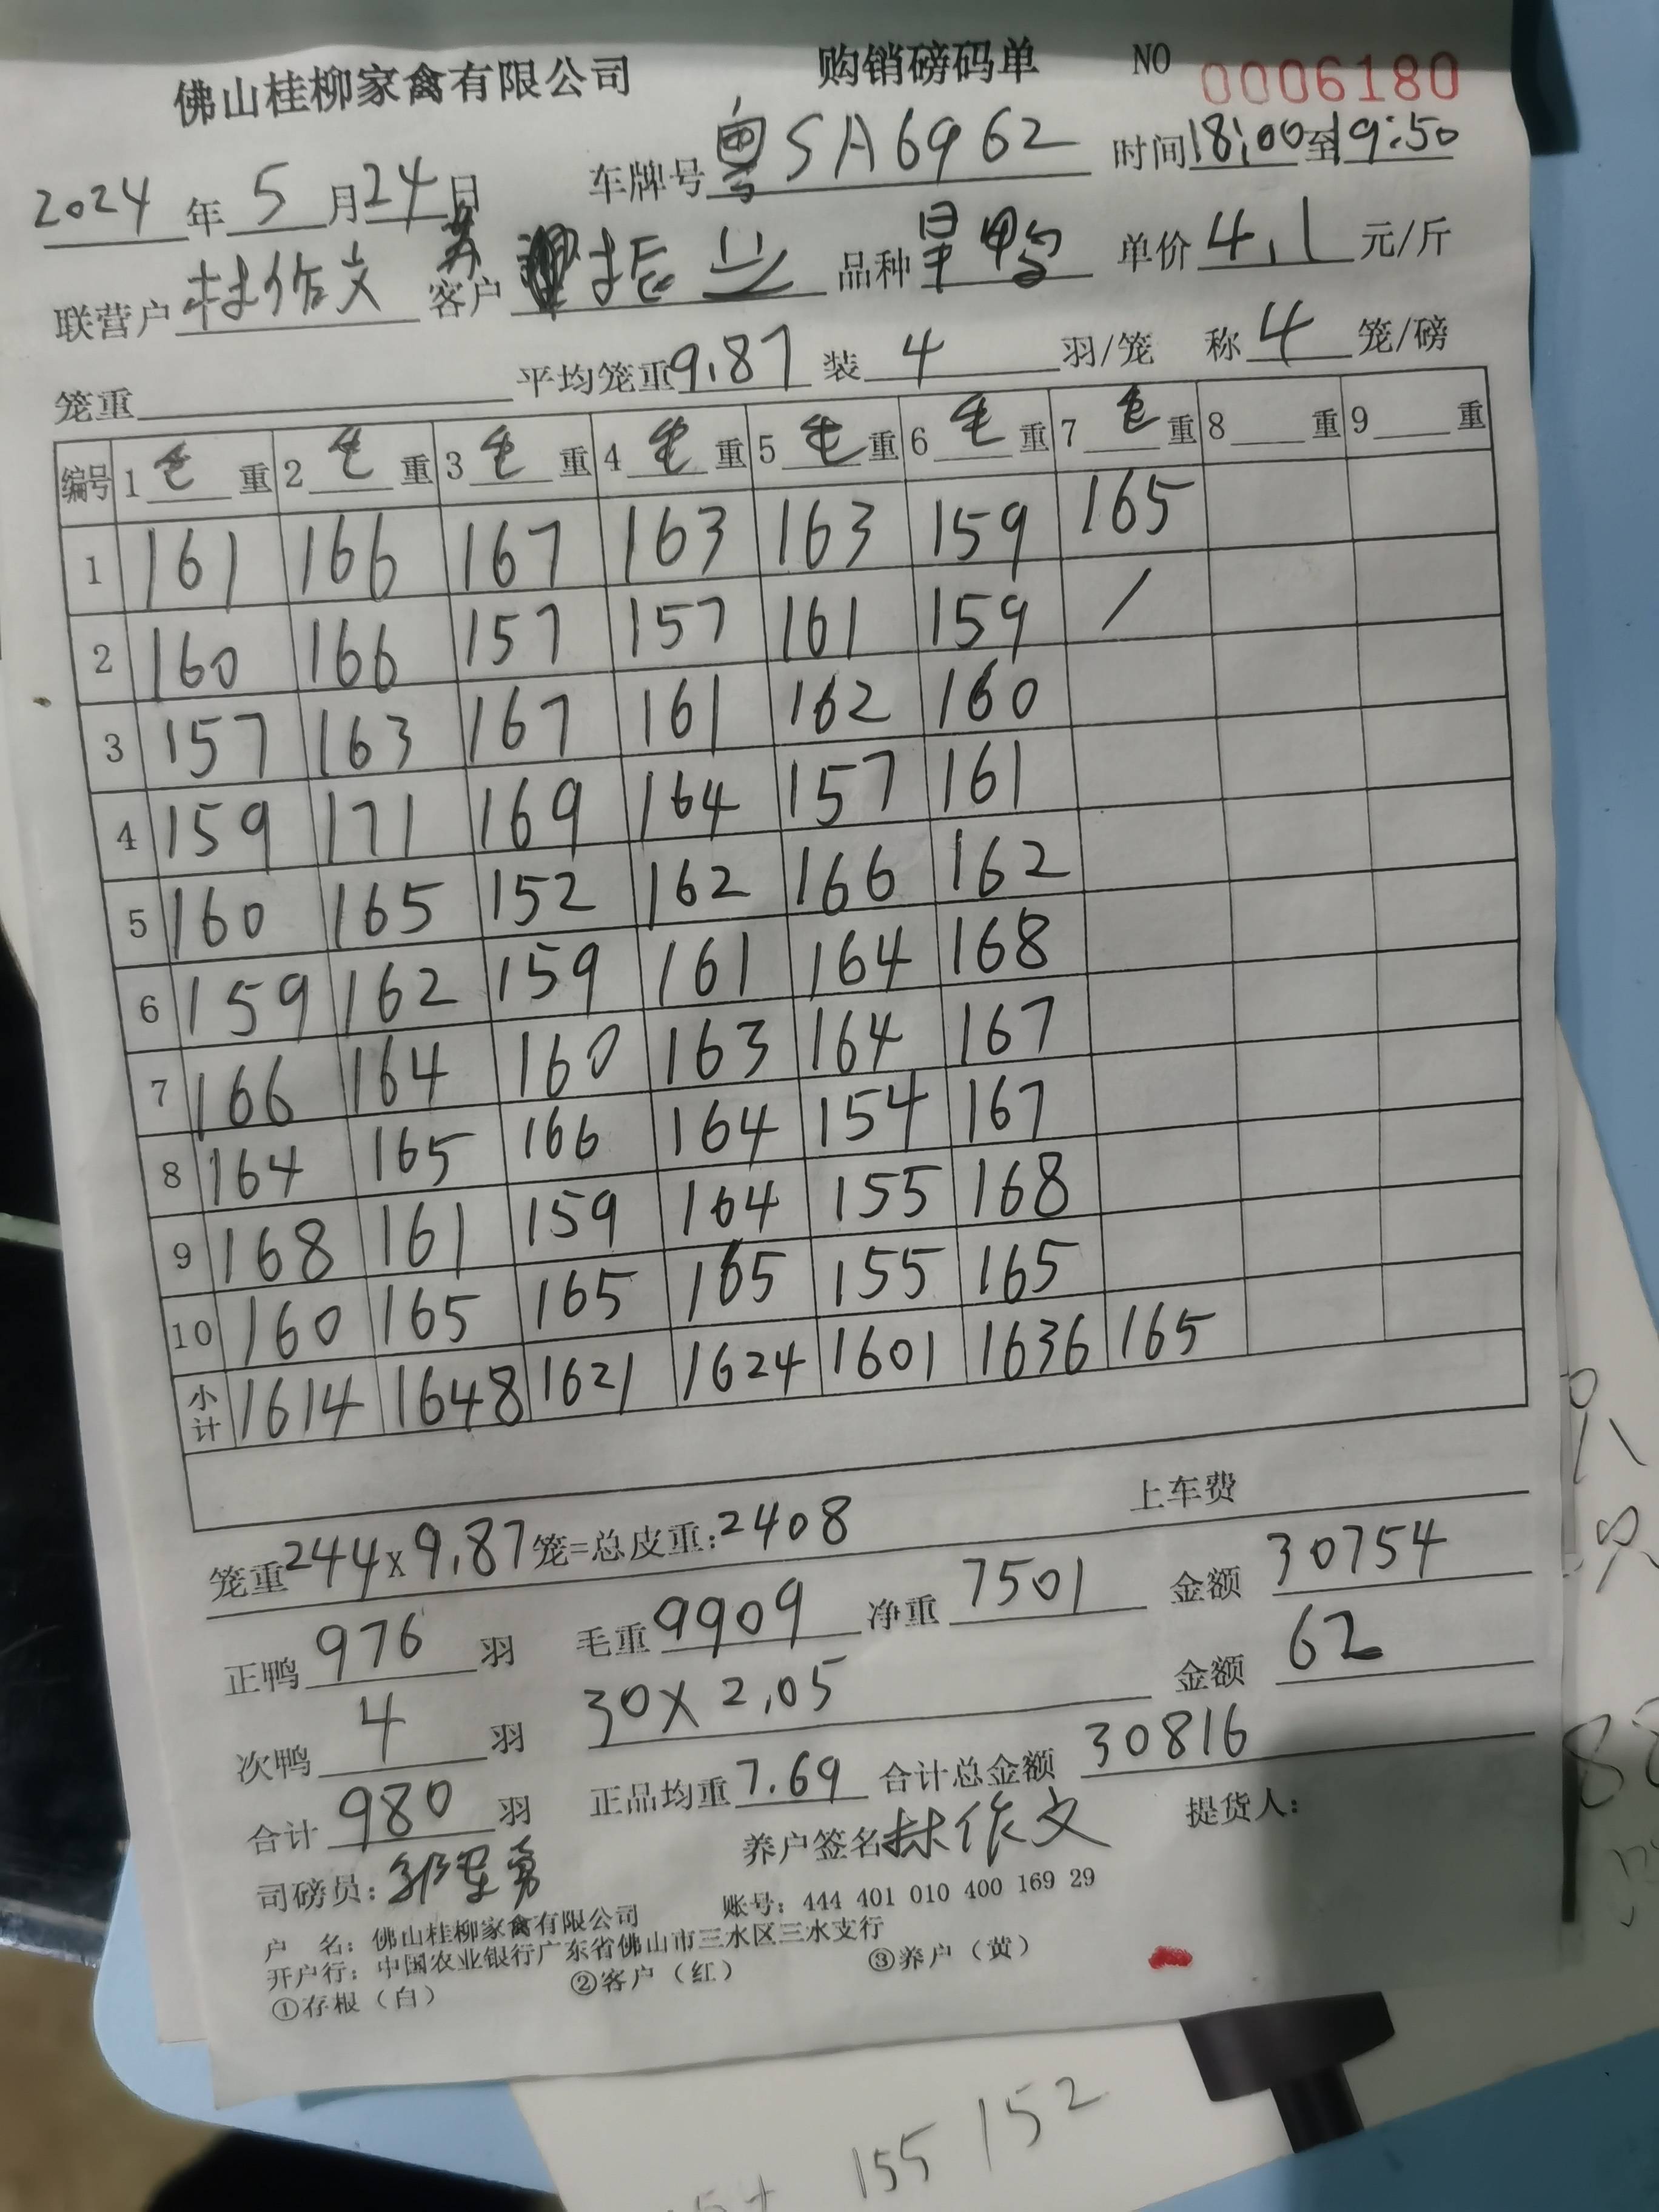 佛山桂柳家禽有限公司 购销磅码单 NO 0006180
2024年5月24日 车牌号粤SA6962 时间18:00至19:50
联营户林作文 客户振兴 品种旱鸭 单价4.1元/斤
笼重 平均笼重9.87 装4羽/笼 称4笼/磅
编号 1毛重 2毛重 3毛重 4毛重 5毛重 6毛重 7毛重 8重 9重
1 161 166 167 163 163 159 165
2 160 166 157 157 161 159 /
3 157 163 167 161 162 160
4 159 171 169 164 157 161
5 160 165 152 162 166 162
6 159 162 159 161 164 168
7 166 164 160 163 164 167
8 164 165 166 164 154 167
9 168 161 159 164 155 168
10 160 165 165 165 155 165
小计 1614 1648 1621 1624 1601 1636 165
上车费
笼重244×9.87笼=总皮重:2408
正鸭976羽 毛重9909 净重7501 金额30754
次鸭4羽 30×2.05 金额62
合计980羽 正品均重7.69 合计总金额30816
司磅员: 养户签名林作文 提货人:
户 名: 佛山桂柳家禽有限公司 账号: 444 401 010 400 169 29
开户行: 中国农业银行广东省佛山市三水区三水支行
①存根（白） ②客户（红） ③养户（黄）
155 152